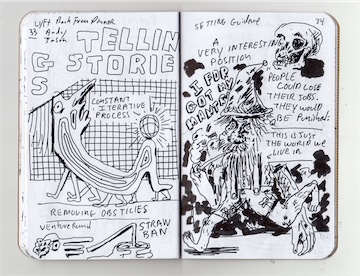 LYFT Back From Dinner
33 Andy
Jason
TELLIN
G STORIE
S
CONSTANT
ITERATIVE
PROCESS
REMOVING OBSTICLES
venture Bund
STRAW
BAN
SETTING Guidance
34
A
VERY INTERESTING
POSITION
I FOR
GOT MY
MANTRA
PEOPLE
COULD LOSE
THEIR JOBS.
THEY WOULD
BE Punished.
THIS IS JUST
THE WORLD WE
LIVE IN